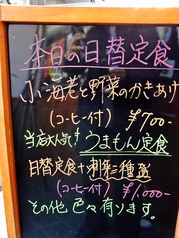 本日の日替定食
小海老と野菜のかきあげ
(コーヒー付) ¥700-
当店大人気! うまもん定食
日替定食+刺身三種盛
(コーヒー付) ¥1,000-
その他 色々有ります。